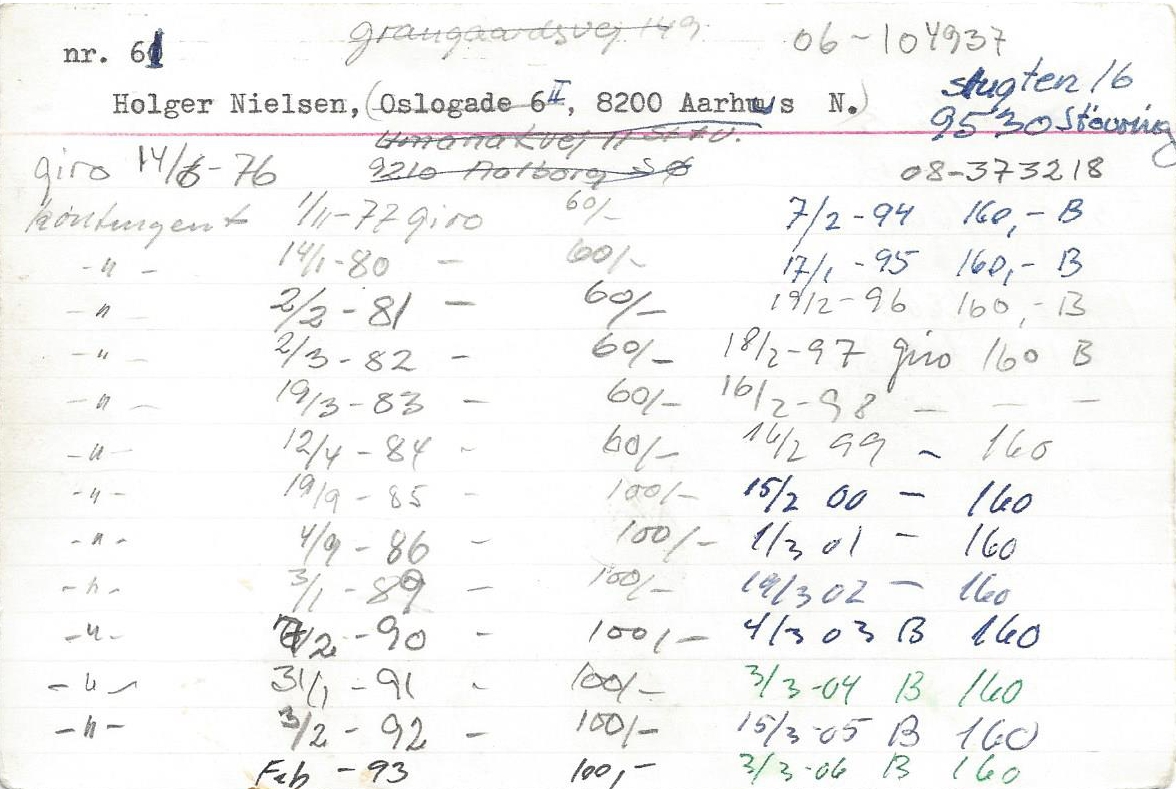 nr. 61 Grangaardsvej 149. 06-104937
Holger Nielsen, (Oslogade 6 II, 8200 Aarhus N.) slugten 16
9530 Støvring
Umanakvej
9210 Aalborg SØ
giro 14/6-76 08-373218
kontingent 1/11-77 giro 60/- 7/2-94 160,- B
-"- 14/1-80 - 60/- 17/1-95 160,- B
-"- 2/2-81 - 60/- 19/2-96 160,- B
-"- 2/3-82 - 60/- 18/2-97 giro 160 B
-"- 19/3-83 - 60/- 16/2-98 - - -
-"- 12/4-84 - 60/- 14/2 99 - 160
-"- 19/9-85 - 100/- 15/2 00 - 160
-"- 4/9-86 - 100/- 1/3 01 - 160
-"- 3/1-89 - 100/- 19/3 02 - 160
-"- 7/2-90 - 100/- 4/3 03 B 160
-"- 31/1-91 - 100/- 3/3-04 B 160
-"- 3/2-92 - 100/- 15/3-05 B 160
Feb - 93 100,- 3/3-06 B 160